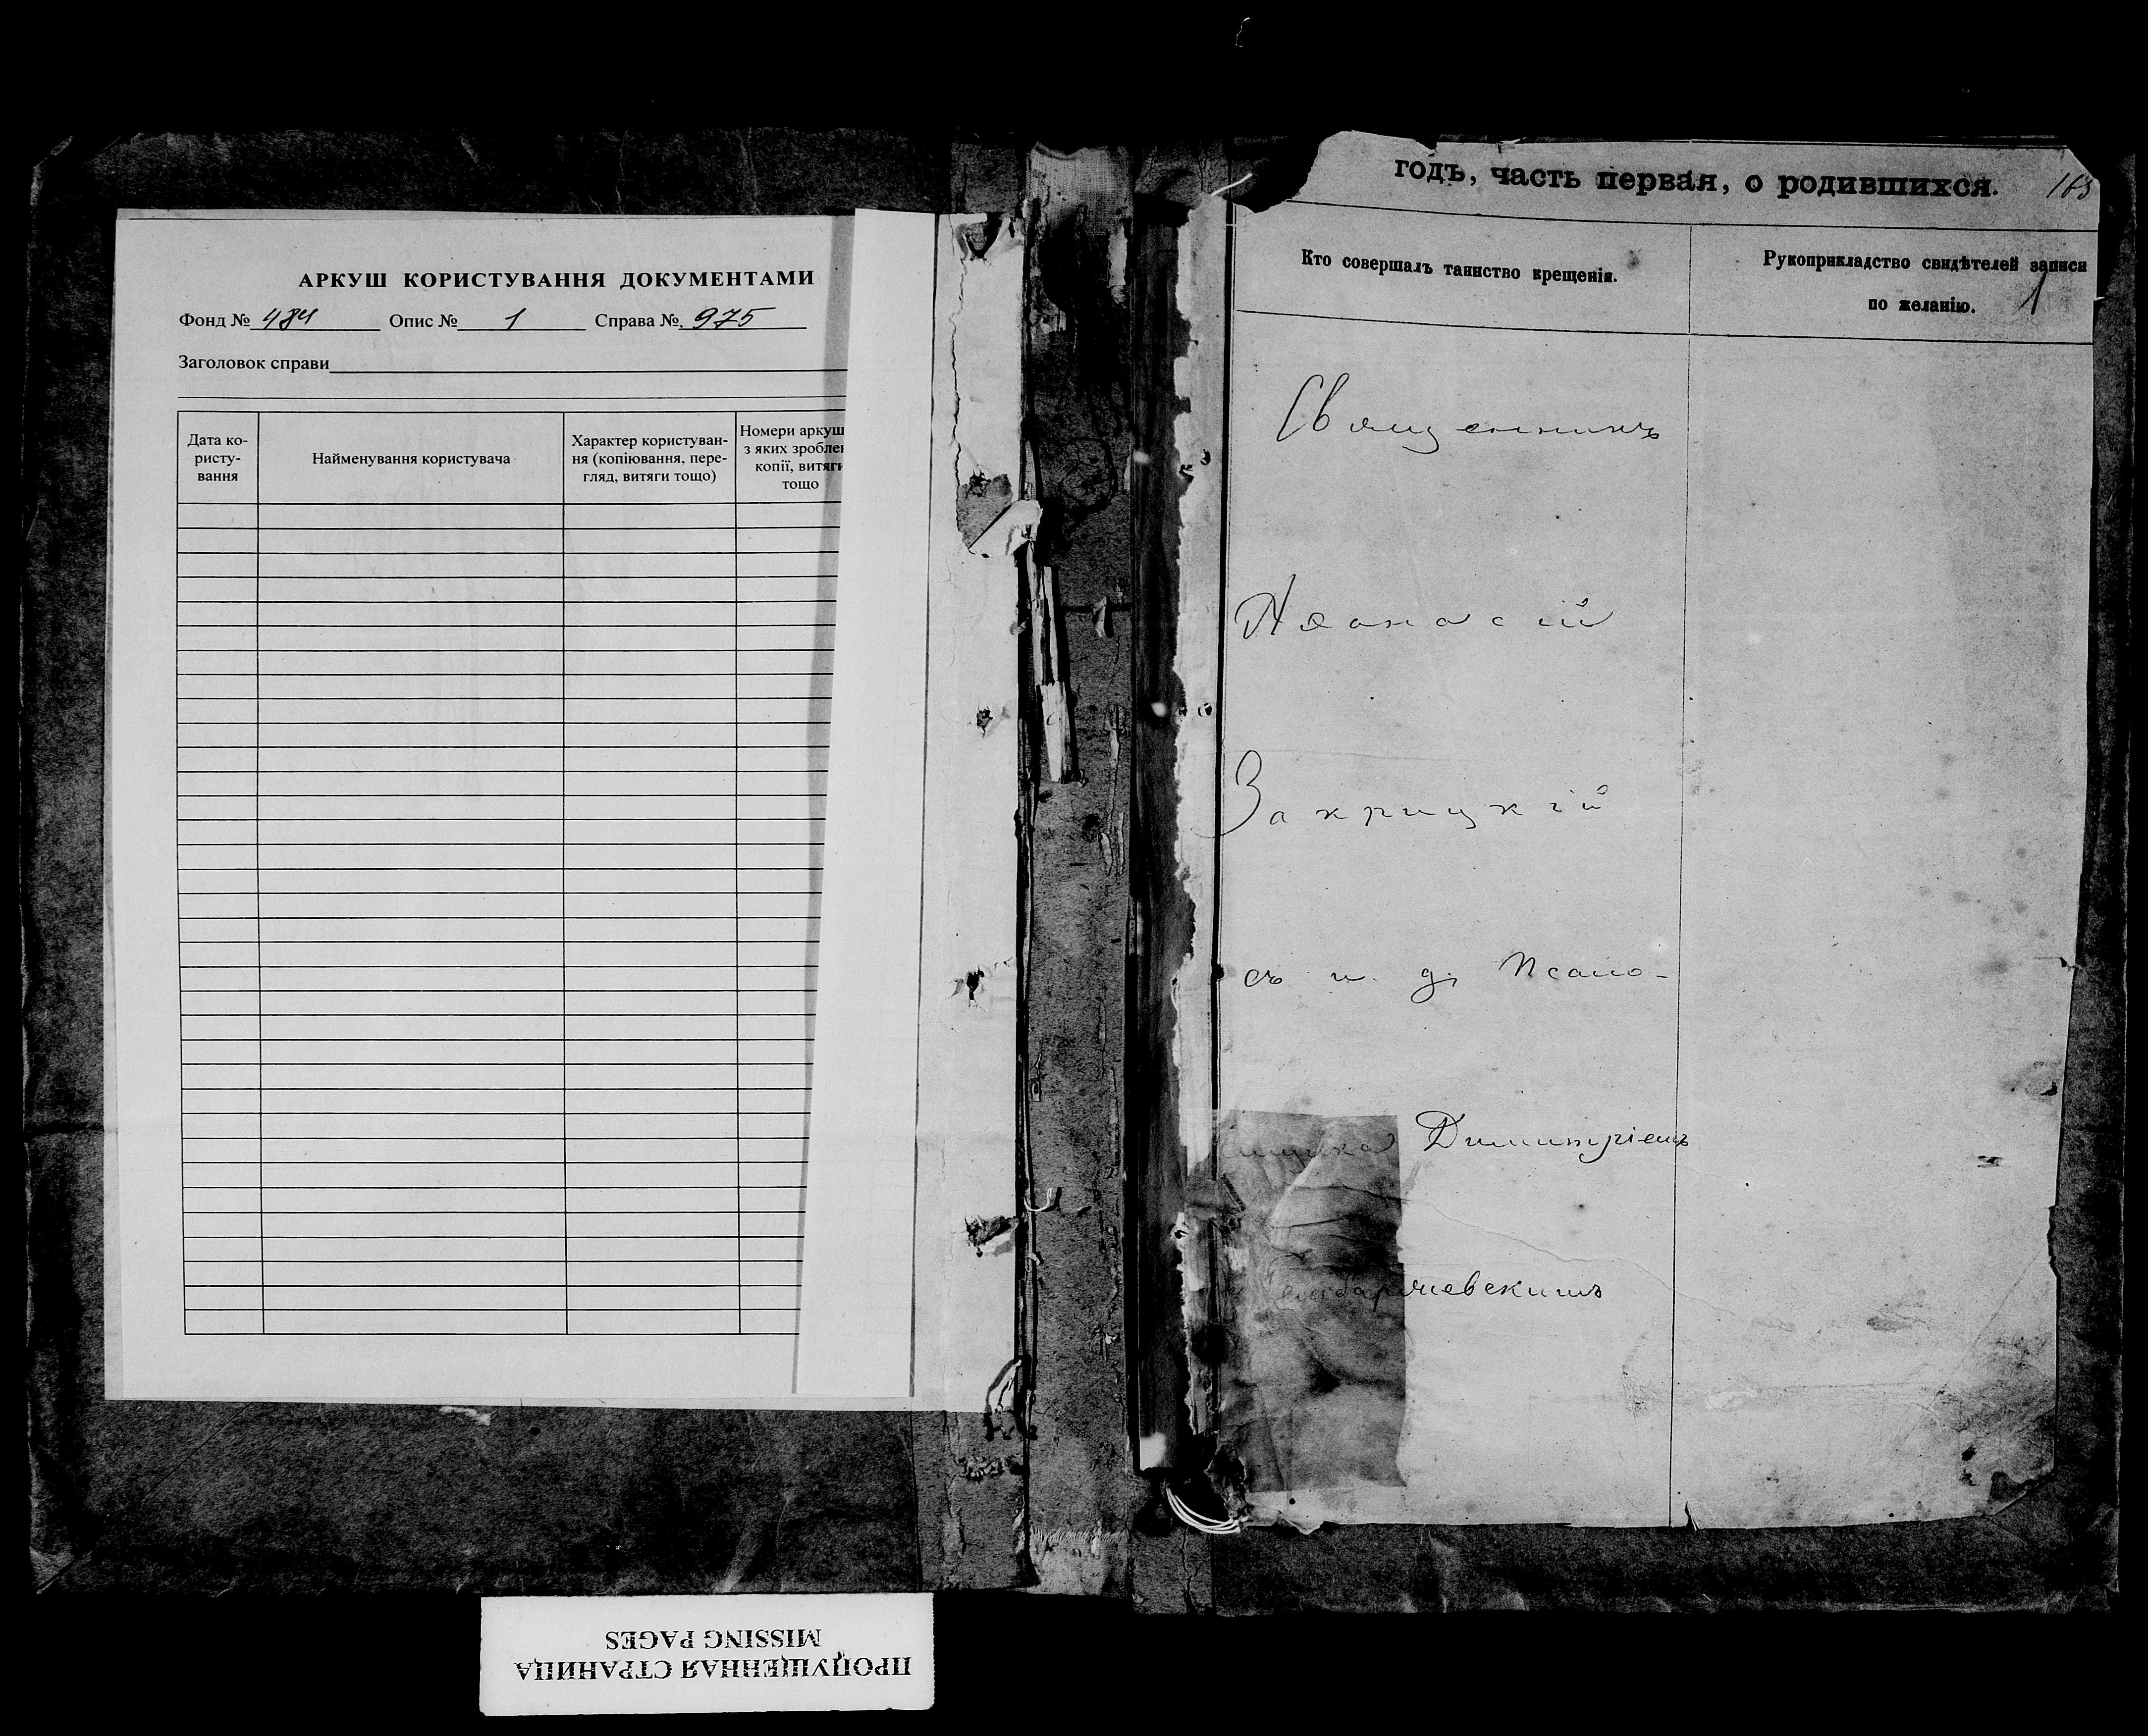 АРКУШ КОРИСТУВАННЯ ДОКУМЕНТАМИ
Фонд № 484 Опис № 1 Справа № 975
Заголовок справи
Дата ко-
ристу-
вання
Найменування користувача
Характер користуван-
ня (копіювання, пере-
гляд, витяги тощо)
Номери аркуш
з яких зроблен
копії, витяги
тощо
годъ, часть первая, о родившихся. 163
Кто совершалъ таинство крещенія.
Рукоприкладство свидѣтелей записи
по желанію. 1
Священникъ
Аѳанасій
Закрицкій
съ и. д. Псало-
мщика Димитріемъ
ПРОПУЩЕННАЯ СТРАНИЦА
MISSING PAGES